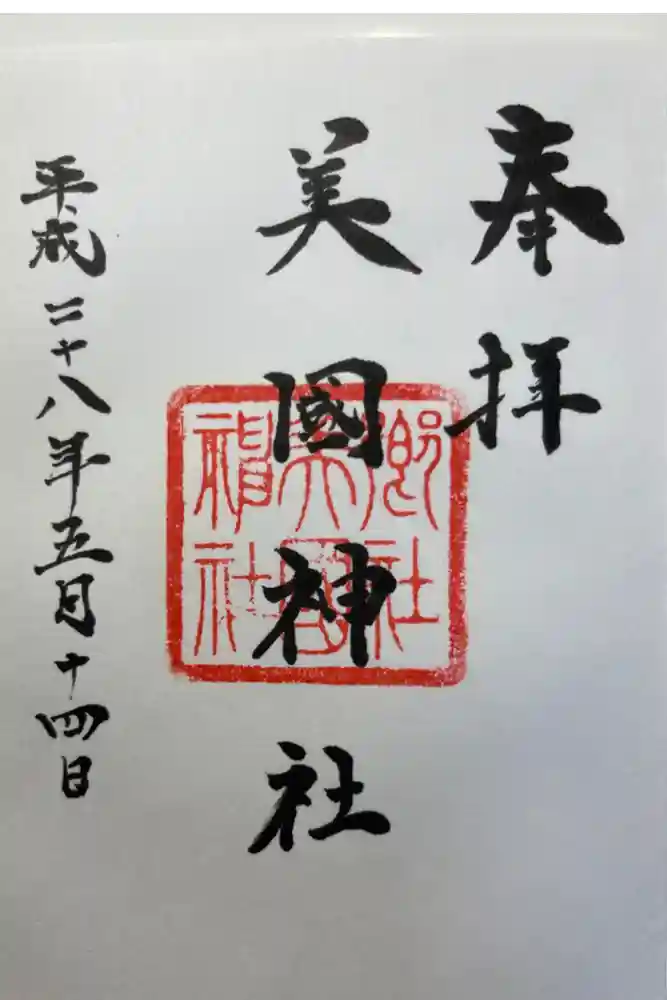 奉拝
美國神社
郷社
美国
神社
平成二十八年五月十四日